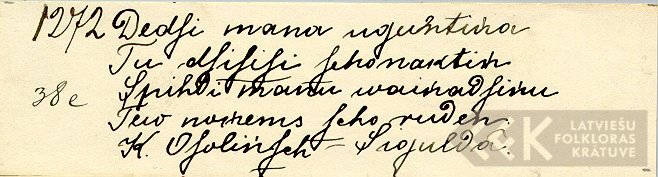 1272 Dedsi mana uguntiņa
Tu dsisisi schonaktiņ
38e Spihdi manu wainadsiņu
Tew noņems scho ruden.
K. Osoliņsch – Siguldā.
LATVIEŠU
FOLKLORAS
KRĀTUVE